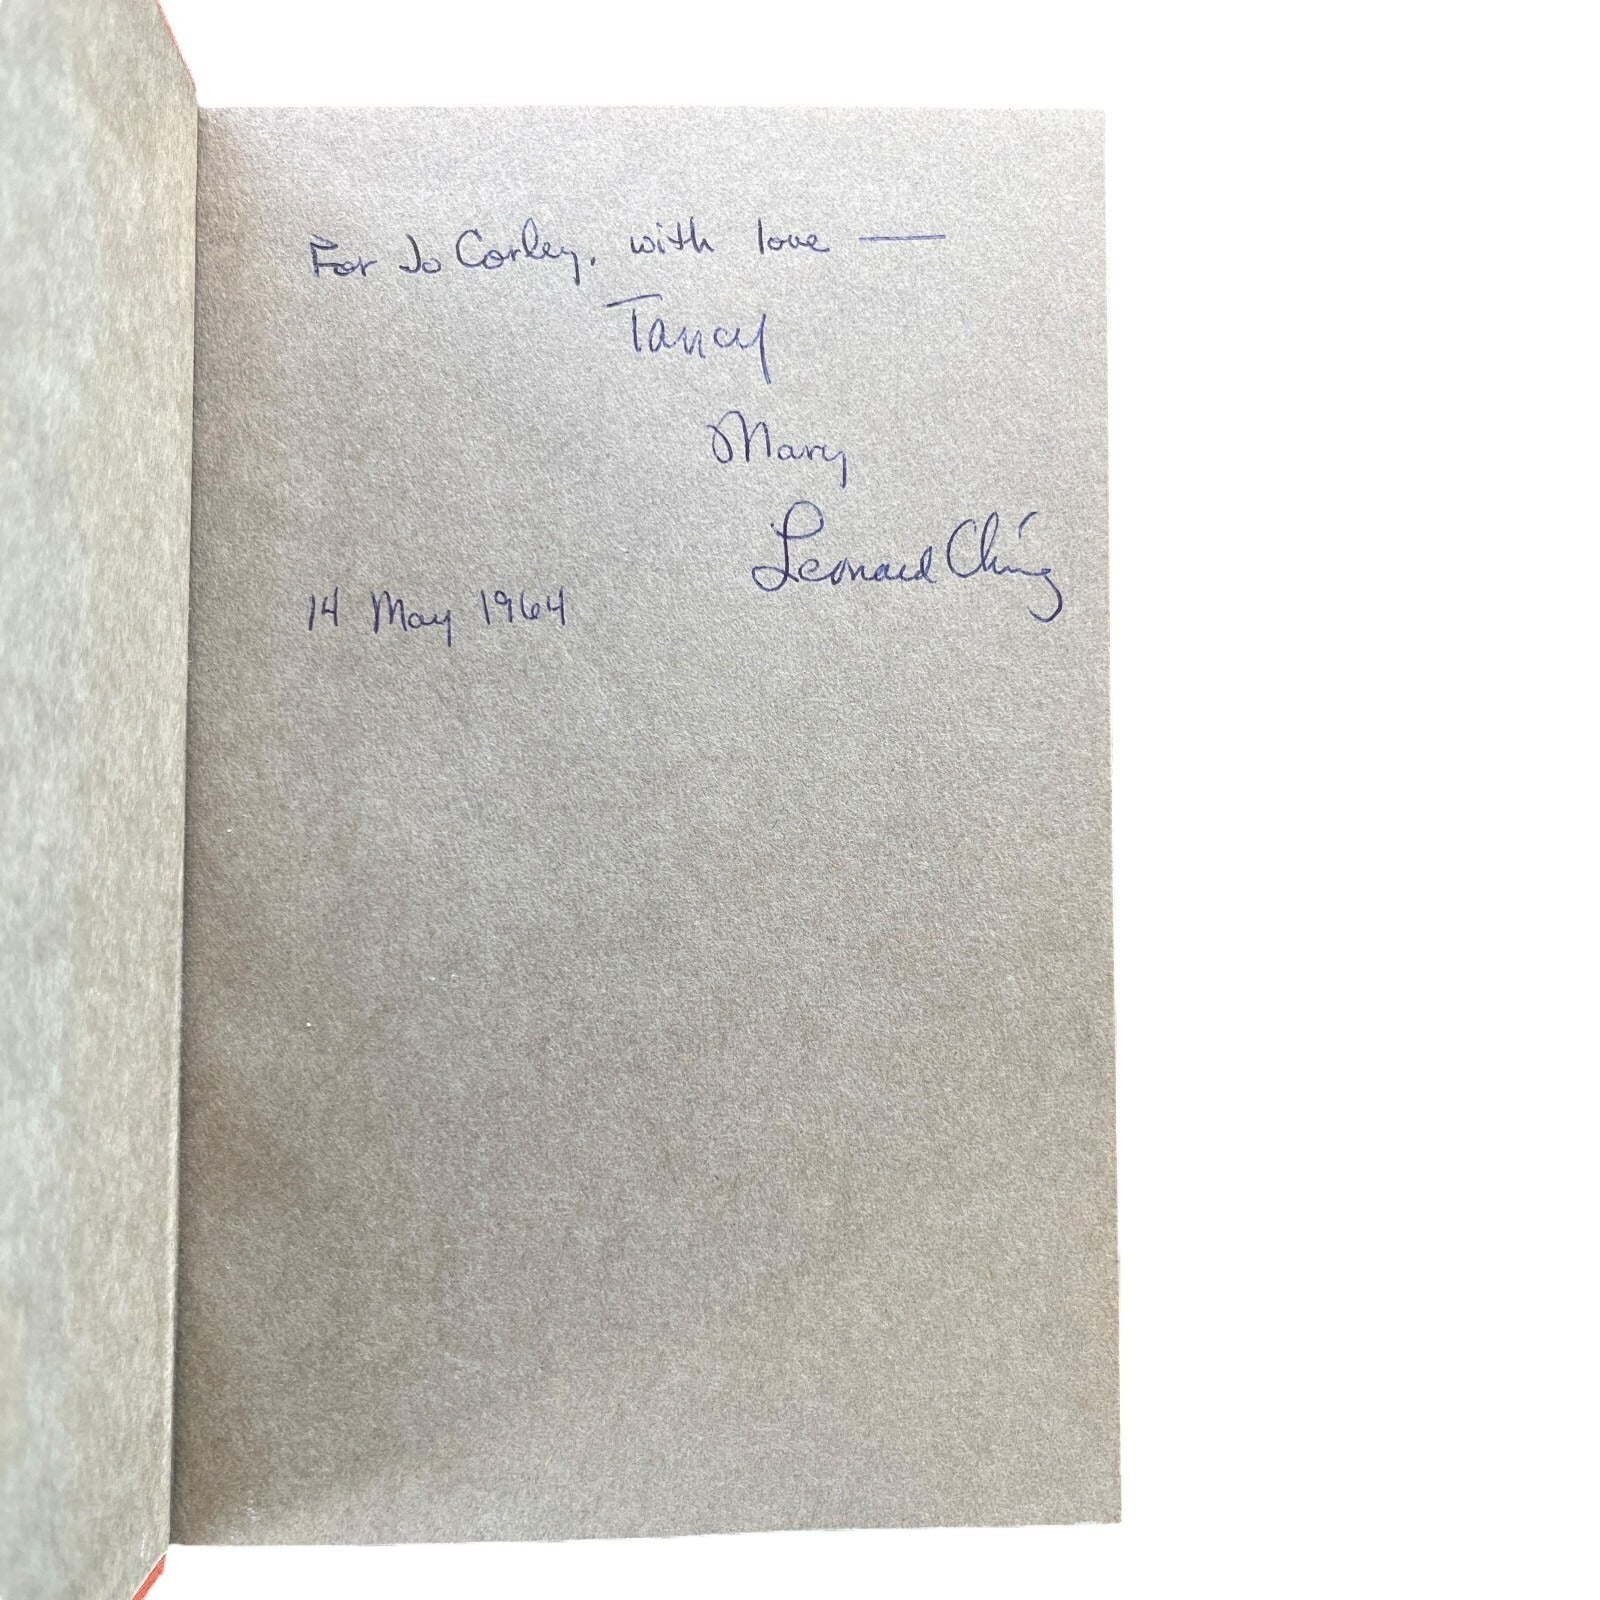 For Jo Corley, with love —
Tancy
Mary
Leonard Ching
14 May 1964